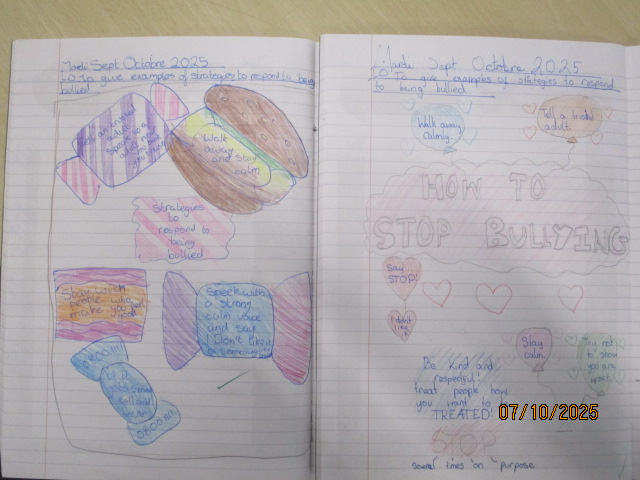 Mardi Sept Octobre 2025
LO To give examples of strategies to respond to being
bullied
Tell an trusted
adult
Speak to a
adult
you trust
Walk
away
and stay
calm
Strategies
to
respond to
being
bullied
Stay with
people who
make you feel
good
Speek with
a strong
calm voice
and say
I Don't like it
0800 1111
call
0800 1111
Mardi Sept Octobre 2025
LO To give examples of strategies to respond
to being bullied
Walk away
calmly.
Tell a trusted
adult.
HOW TO
STOP BULLYING
Say
STOP!
I don't
like it
Stay
calm.
Try not
to show
you are
upset.
Be Kind and
respectful!
treat people how
you want to
TREATED!
07/10/2025
STOP
Several times on purpose